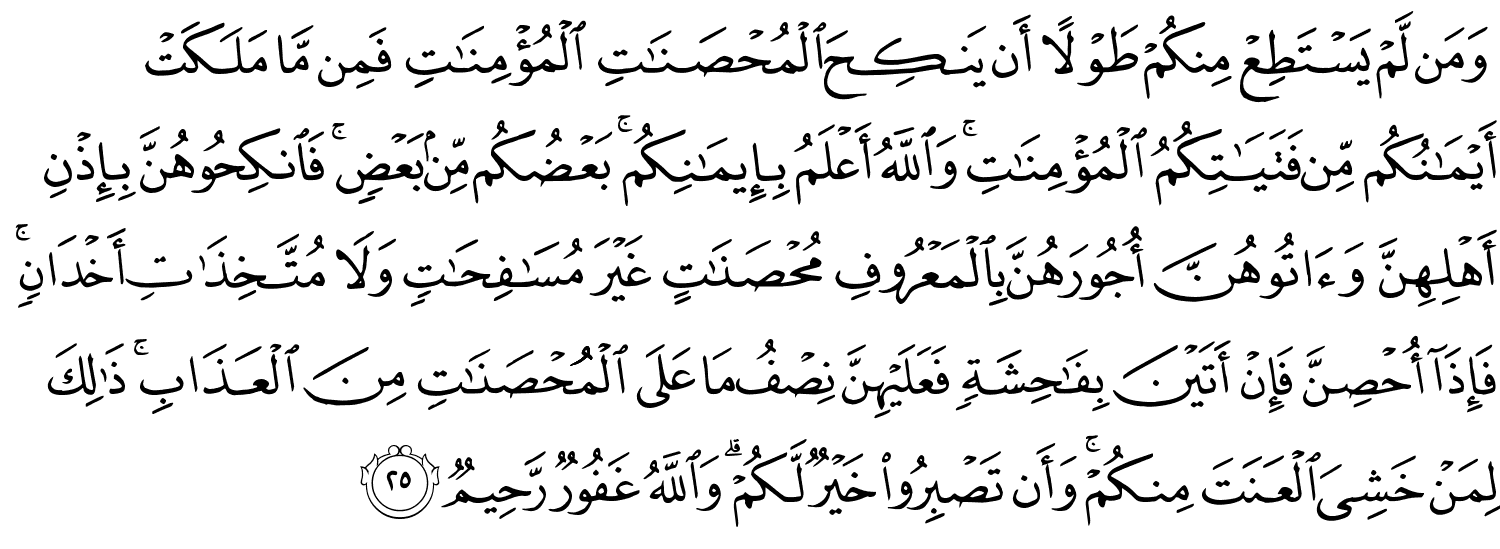 وَمَن لَّمْ يَسْتَطِعْ مِنكُمْ طَوْلًا أَن يَنكِحَ ٱلْمُحْصَنَـٰتِ ٱلْمُؤْمِنَـٰتِ فَمِن مَّا مَلَكَتْ
أَيْمَـٰنُكُم مِّن فَتَيَـٰتِكُمُ ٱلْمُؤْمِنَـٰتِ ۚ وَٱللَّهُ أَعْلَمُ بِإِيمَـٰنِكُم ۚ بَعْضُكُم مِّنۢ بَعْضٍ ۚ فَٱنكِحُوهُنَّ بِإِذْنِ
أَهْلِهِنَّ وَءَاتُوهُنَّ أُجُورَهُنَّ بِٱلْمَعْرُوفِ مُحْصَنَـٰتٍ غَيْرَ مُسَـٰفِحَـٰتٍ وَلَا مُتَّخِذَٰتِ أَخْدَانٍ ۚ
فَإِذَآ أُحْصِنَّ فَإِنْ أَتَيْنَ بِفَـٰحِشَةٍ فَعَلَيْهِنَّ نِصْفُ مَا عَلَى ٱلْمُحْصَنَـٰتِ مِنَ ٱلْعَذَابِ ۚ ذَٰلِكَ
لِمَنْ خَشِىَ ٱلْعَنَتَ مِنكُمْ ۚ وَأَن تَصْبِرُوا۟ خَيْرٌ لَّكُمْ ۗ وَٱللَّهُ غَفُورٌ رَّحِيمٌ ٢٥